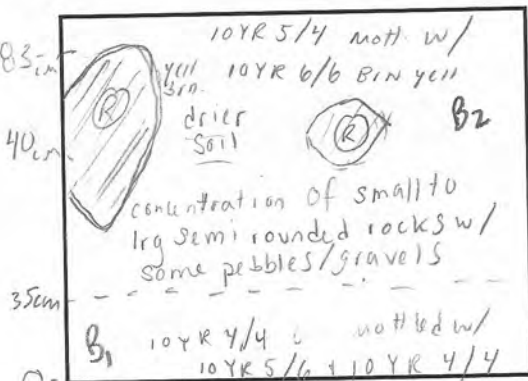 10YR 5/4 mott. w/
83cm
yell 10YR 6/6 Brn yell
brn.
R
drier
soil
R
B2
40cm
concentration of small to
lrg semi rounded rocks w/
some pebbles/gravels
35cm
B1 10YR 4/4 mottled w/
10YR 5/6 + 10YR 4/4